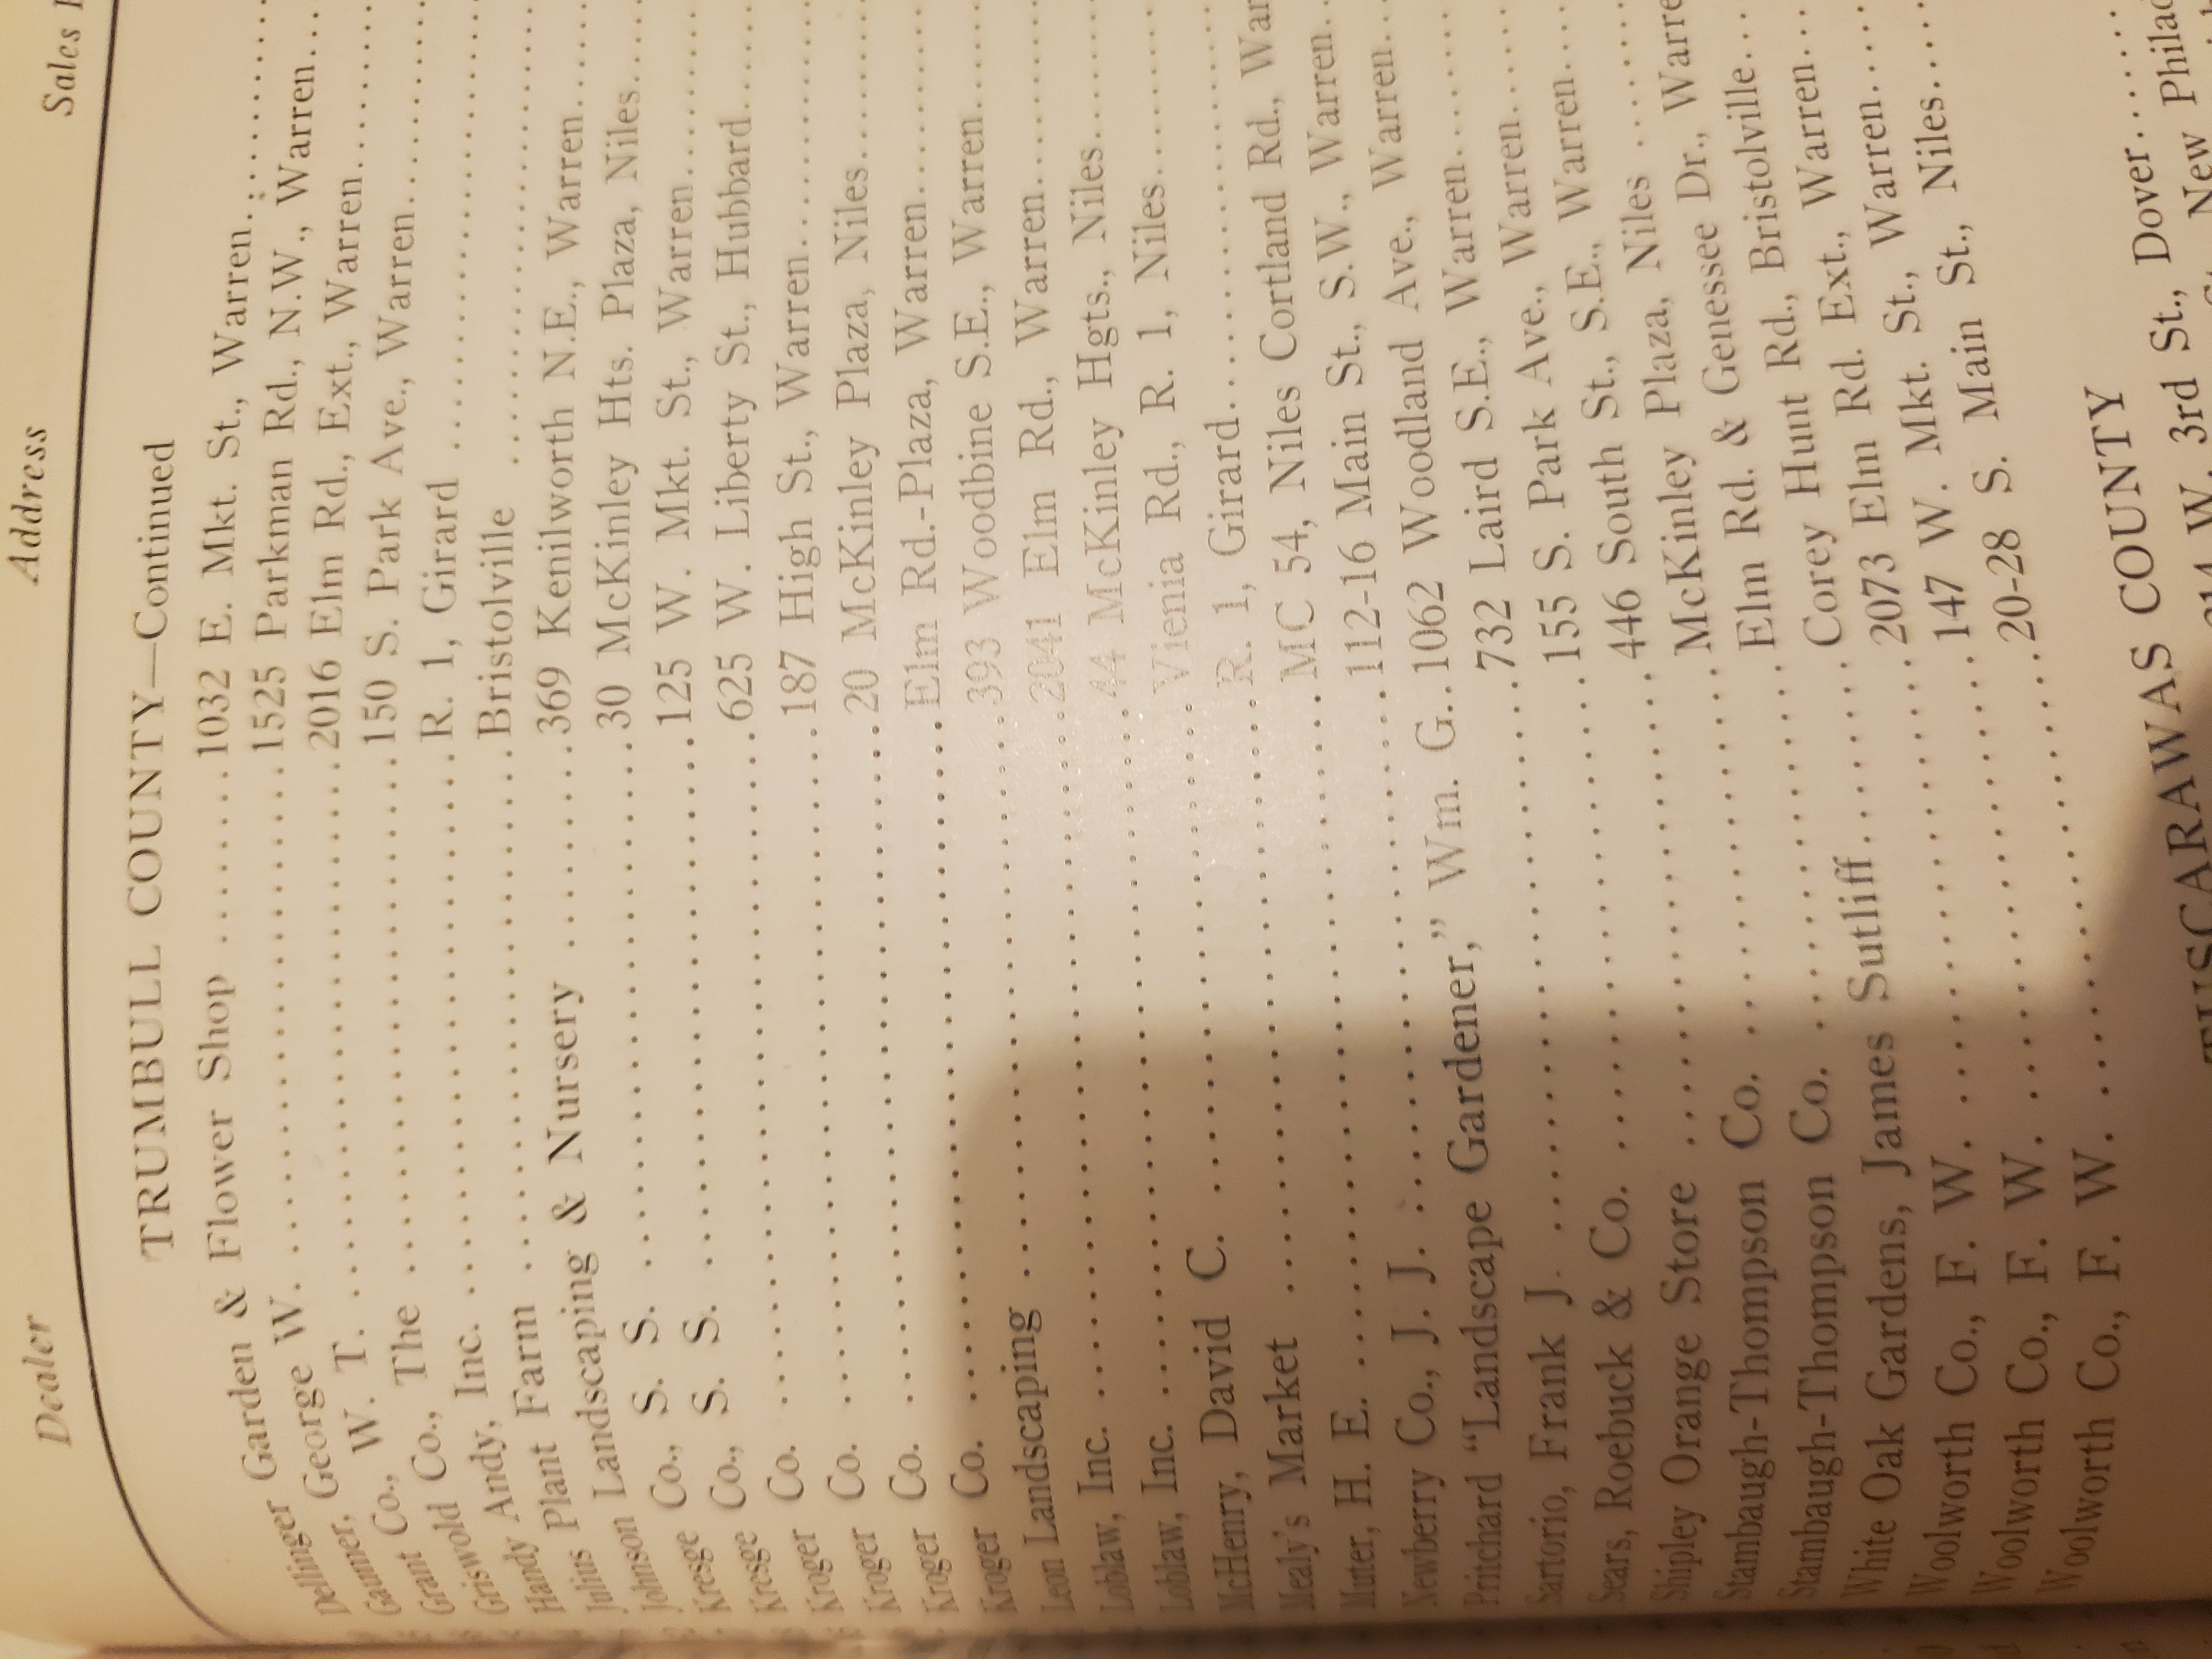 Dealer Address Sales
TRUMBULL COUNTY—Continued
Dellinger Garden & Flower Shop ........1032 E. Mkt. St., Warren..........
Gaumer, George W. ........1525 Parkman Rd., N.W., Warren....
Grant Co., W. T. ........2016 Elm Rd., Ext., Warren..........
Griswold Co., The ........150 S. Park Ave., Warren..........
Handy Andy, Inc. ........R. 1, Girard ..........
Julius Plant Farm ........Bristolville ..........
Johnson Landscaping & Nursery ........369 Kenilworth N.E., Warren......
Kresge Co., S. S. ........30 McKinley Hts. Plaza, Niles.....
Kresge Co., S. S. ........125 W. Mkt. St., Warren..........
Kroger Co. ........625 W. Liberty St., Hubbard......
Kroger Co. ........187 High St., Warren..........
Kroger Co. ........20 McKinley Plaza, Niles........
Kroger Co. ........Elm Rd.-Plaza, Warren..........
Leon Landscaping ........393 Woodbine S.E., Warren......
Loblaw, Inc. ........2041 Elm Rd., Warren..........
Loblaw, Inc. ........44 McKinley Hgts., Niles........
McHenry, David C. ........Vienia Rd., R. 1, Niles........
Mealy's Market ........R. 1, Girard..........
Muter, H. E. ........MC 54, Niles Cortland Rd., War
Newberry Co., J. J. ........112-16 Main St., S.W., Warren...
Pritchard “Landscape Gardener,” Wm. G..1062 Woodland Ave., Warren....
Sartorio, Frank J. ........732 Laird S.E., Warren........
Sears, Roebuck & Co. ........155 S. Park Ave., Warren........
Shipley Orange Store ........446 South St., S.E., Warren......
Stambaugh-Thompson Co. ........McKinley Plaza, Niles ......
Stambaugh-Thompson Co. ........Elm Rd. & Genessee Dr., Warre
White Oak Gardens, James Sutliff........Corey Hunt Rd., Bristolville....
Woolworth Co., F. W. ........2073 Elm Rd. Ext., Warren......
Woolworth Co., F. W. ........147 W. Mkt. St., Warren......
Woolworth Co., F. W. ........20-28 S. Main St., Niles......
TUSCARAWAS COUNTY
W. 3rd St., Dover......
New Philad